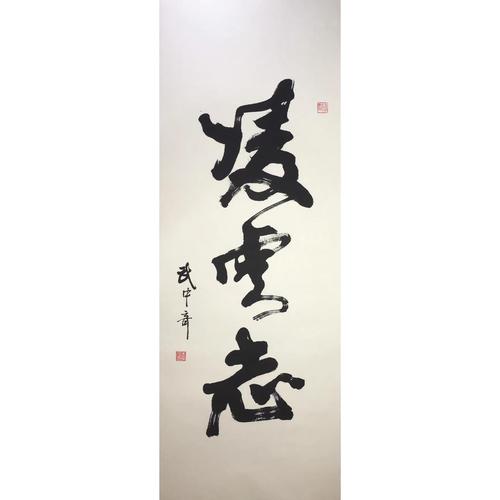 凌雲志
武中奇